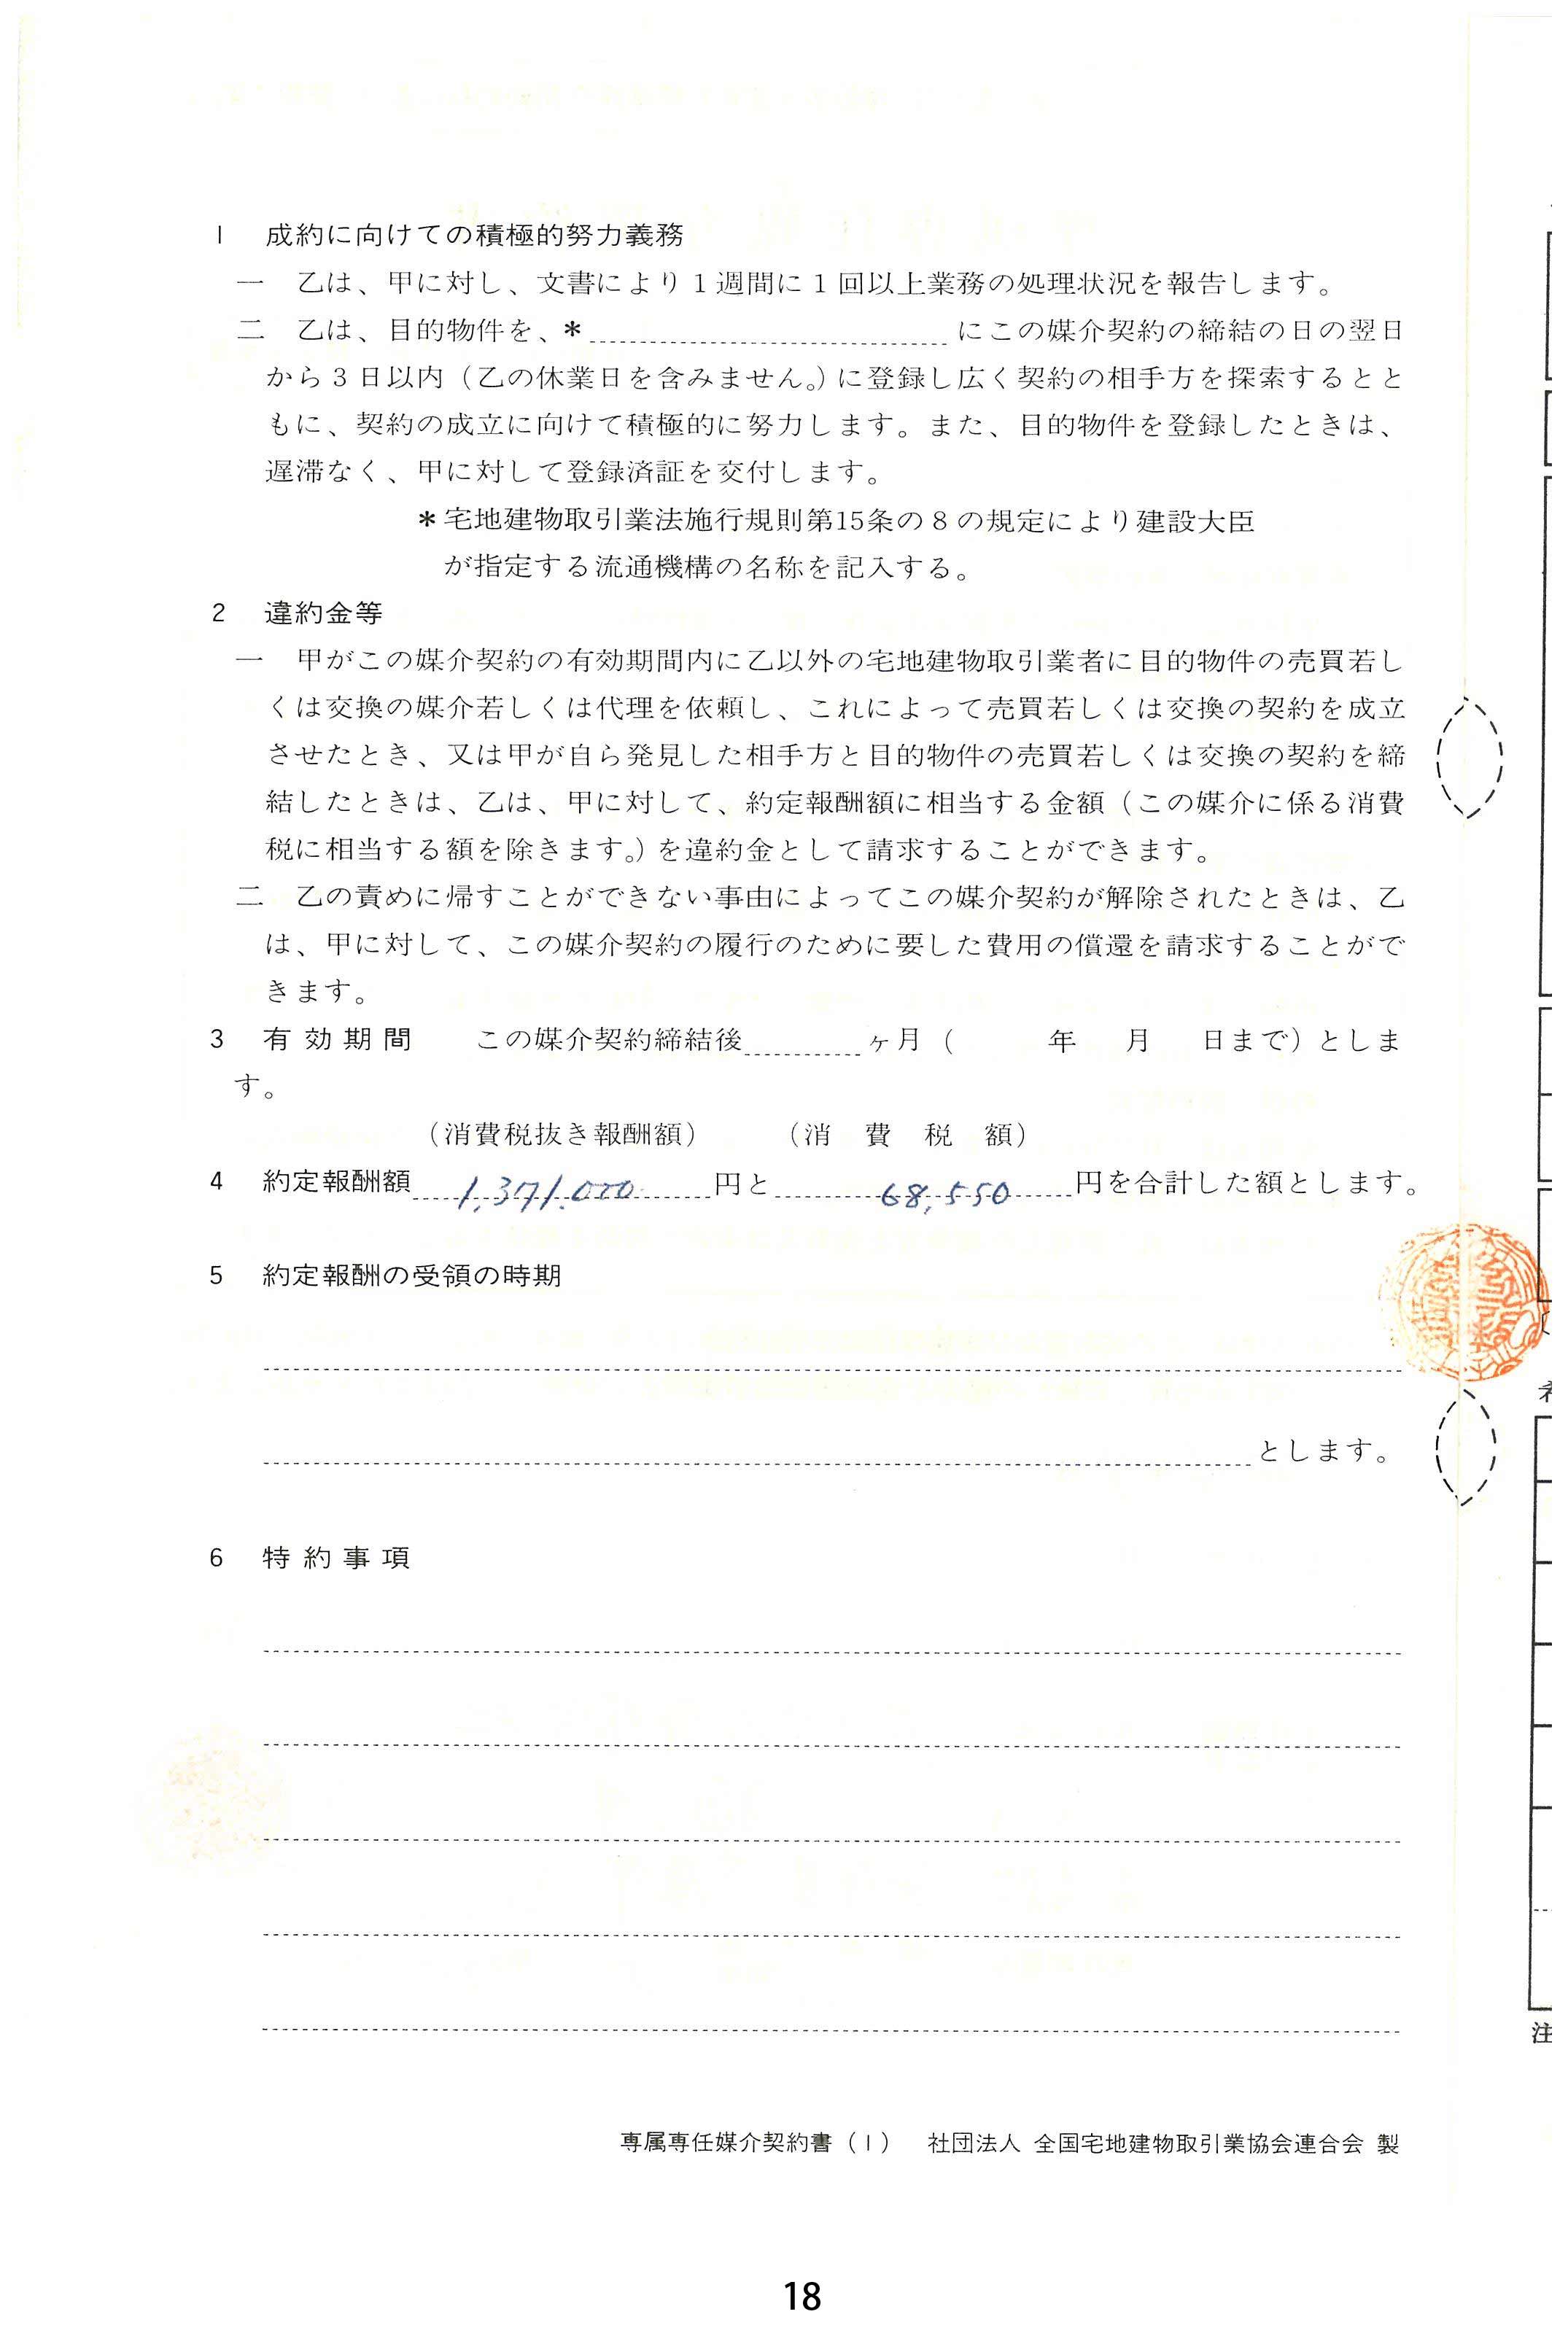 1 成約に向けての積極的努力義務
一 乙は、甲に対し、文書により1週間に1回以上業務の処理状況を報告します。
二 乙は、目的物件を、* にこの媒介契約の締結の日の翌日
から3日以内(乙の休業日を含みません。)に登録し広く契約の相手方を探索するとと
もに、契約の成立に向けて積極的に努力します。また、目的物件を登録したときは、
遅滞なく、甲に対して登録済証を交付します。
*宅地建物取引業法施行規則第15条の8の規定により建設大臣
が指定する流通機構の名称を記入する。
2 違約金等
一 甲がこの媒介契約の有効期間内に乙以外の宅地建物取引業者に目的物件の売買若し
くは交換の媒介若しくは代理を依頼し、これによって売買若しくは交換の契約を成立
させたとき、又は甲が自ら発見した相手方と目的物件の売買若しくは交換の契約を締
結したときは、乙は、甲に対して、約定報酬額に相当する金額(この媒介に係る消費
税に相当する額を除きます。)を違約金として請求することができます。
二 乙の責めに帰すことができない事由によってこの媒介契約が解除されたときは、乙
は、甲に対して、この媒介契約の履行のために要した費用の償還を請求することがで
きます。
3 有効期間 この媒介契約締結後 ヶ月( 年 月 日まで)としま
す。
(消費税抜き報酬額) (消費税額)
4 約定報酬額 1,371,000 円と 68,550 円を合計した額とします。
5 約定報酬の受領の時期
とします。
6 特約事項
専属専任媒介契約書(1) 社団法人 全国宅地建物取引業協会連合会 製
注
18